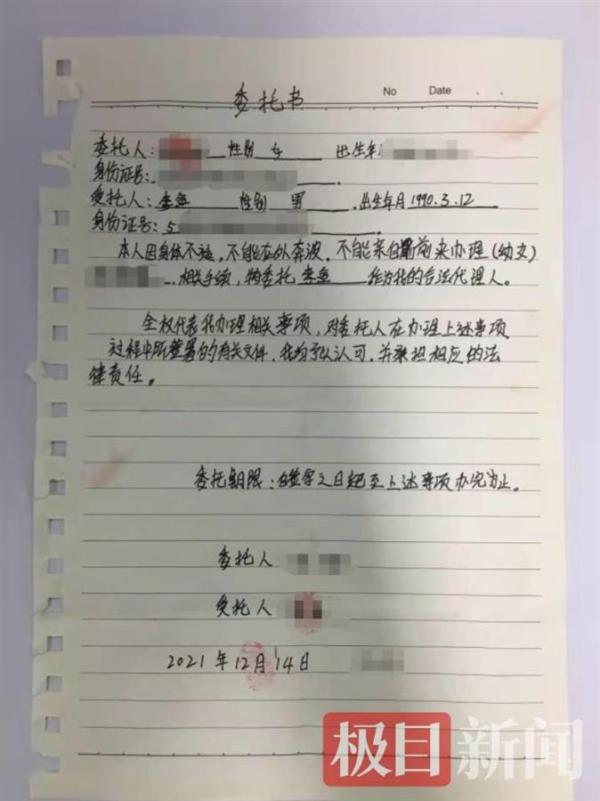 No Date . .
委托书
委托人: 性别 女 出生年
身份证号:
受托人: 李 性别 男 . 出生年月 1990.3.12
身份证号: 5
本人因身体不适, 不能在外奔波, 不能亲自前来办理(幼女)
相关手续, 特委托 李 作为我的合法代理人。
全权代表我办理相关事项, 对委托人在办理上述事项
过程中所签署的有关文件, 我均予以认可, 并承担相应的法
律责任。
委托期限: 自签字之日起至上述事项办完为止。
委托人
受托人
2021年12月14日
极目新闻